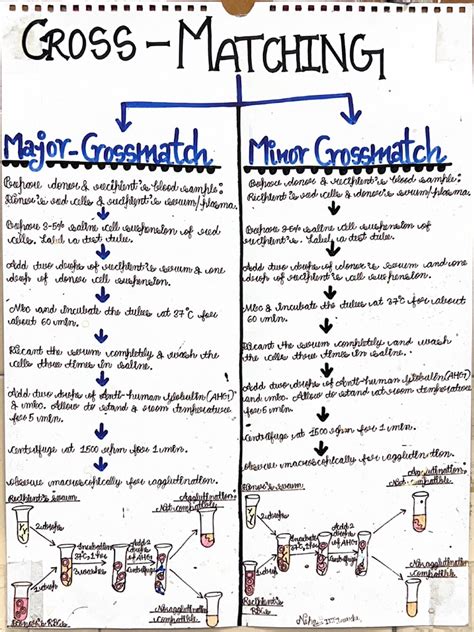 CROSS-MATCHING
Major-Crossmatch
Prepare donor & recipient's blood sample:
Donor's red cells & recipient's serum/plasma.
Prepare 3-5% saline cell suspension of red
cells. Label a test tube.
Add two drops of recipient's serum & one
drop of donor cell suspension.
Mix and incubate the tubes at 37°C for
about 60 min.
Decant the serum completely & wash
the cells three times in saline.
Add two drops of Anti-human globulin (AHG)
& mix. Allow to stand @ room temperature
for 5 min.
Centrifuge at 1500 rpm for 1 min.
Observe macroscopically for agglutination.
Recipient's serum
2 drops
Donor's RBCs
Incubation
37°C, 1 hr
3 washes
Add 2
drops
of AHG
Centrifuge
Agglutination:
Not-compatible
Non agglutination:
Compatible
Minor Crossmatch
Prepare donor & recipient's blood sample:
Recipient's red cells & donor's serum/plasma.
Prepare 3-5% saline cell suspension of
recipient's. Label in test tube.
Add two drops of donor's serum and one
drop of recipient's cell suspension.
Mix & Incubate the tubes at 37°C for about
60 min.
Decant the serum completely and wash
the cells three times in saline.
Add two drops of Anti-human globulin (AHG)
and mix. Allow to stand at room temperature
for 5 min.
Centrifuge at 1500 rpm for 1 min.
Observe macroscopically for agglutination.
Donor's serum
2 drops
Recipient's
RBCs
Incubate
37°C, 1 hr
3 washes
Add 2
drops
of AHG
Centrifuge
Agglutination:
Not compatible
Non agglutination:
Compatible